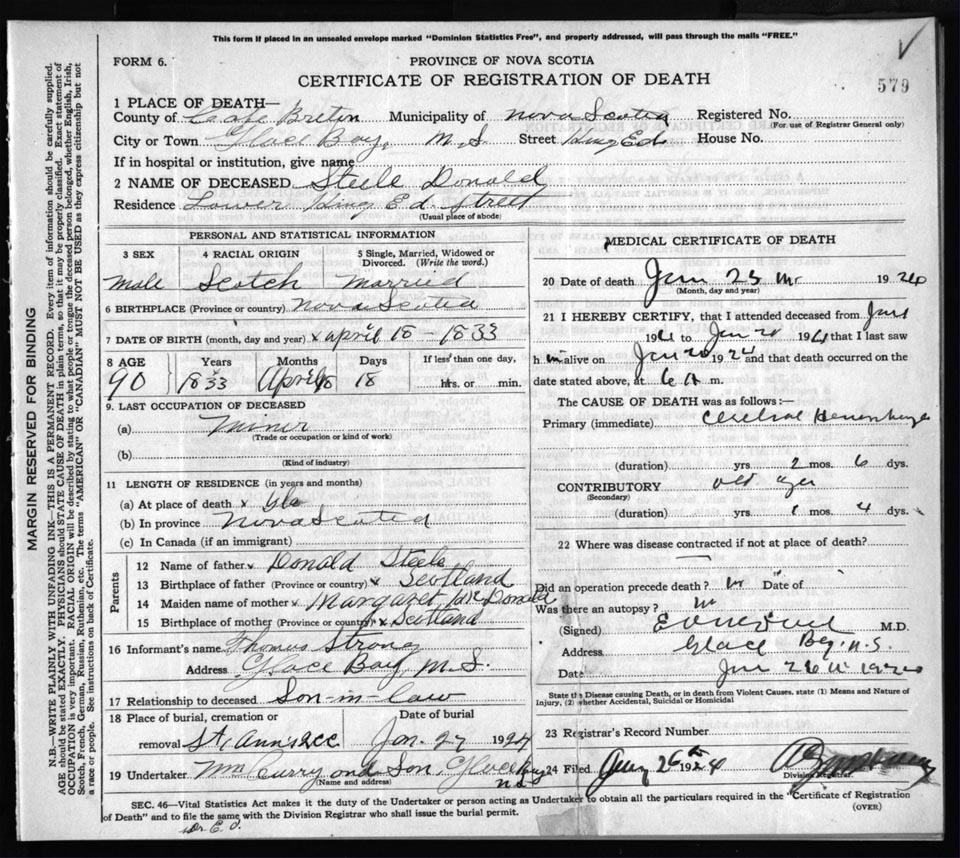 This form if placed in an unsealed envelope marked "Dominion Statistics Free", and properly addressed, will pass through the mails "FREE."
FORM 6.
PROVINCE OF NOVA SCOTIA
CERTIFICATE OF REGISTRATION OF DEATH
579
1 PLACE OF DEATH—
County of Cape Breton Municipality of Nova Scotia Registered No.
(For use of Registrar General only)
City or Town Glace Bay, N.S. Street King Ed. House No.
If in hospital or institution, give name
2 NAME OF DECEASED Steele Donald
Residence Lower King Ed. Street
(Usual place of abode)
PERSONAL AND STATISTICAL INFORMATION
3 SEX
4 RACIAL ORIGIN
5 Single, Married, Widowed or Divorced. (Write the word.)
Male Scotch Married
6 BIRTHPLACE (Province or country) Nova Scotia
7 DATE OF BIRTH (month, day and year) x April 18 - 1833
8 AGE Years Months Days If less than one day,
90 1833 April 18 18 hrs. or min.
9. LAST OCCUPATION OF DECEASED
(a) Miner
(Trade or occupation or kind of work)
(b)
(Kind of industry)
11 LENGTH OF RESIDENCE (in years and months)
(a) At place of death x
(b) In province Nova Scotia
(c) In Canada (if an immigrant)
Parents
12 Name of father x Donald Steele
13 Birthplace of father (Province or country) x Scotland
14 Maiden name of mother x Margaret McDonald
15 Birthplace of mother (Province or country) x Scotland
16 Informant's name Thomas Strong
Address Glace Bay, N.S.
17 Relationship to deceased Son-in-law
18 Place of burial, cremation or removal St. Ann's Date of burial Jan. 27 1924
19 Undertaker Wm Curry and Son, Glace Bay N.S.
(Name and address)
MEDICAL CERTIFICATE OF DEATH
20 Date of death Jan 25 1924
(Month, day and year)
21 I HEREBY CERTIFY, that I attended deceased from Jan
192 to Jan 20 192 that I last saw
him alive on Jan 20 1924 and that death occurred on the
date stated above, at 6 A m.
The CAUSE OF DEATH was as follows:—
Primary (immediate) Cerebral Hemorrhage
(duration) yrs. 2 mos. 6 dys.
CONTRIBUTORY old age
(Secondary)
(duration) yrs. 1 mos. 4 dys.
22 Where was disease contracted if not at place of death?
Did an operation precede death? no Date of
Was there an autopsy? no
(Signed) M.D.
Address Glace Bay, N.S.
Date Jan 26th 1924
State the Disease causing Death, or in death from Violent Causes, state (1) Means and Nature of Injury, (2) whether Accidental, Suicidal or Homicidal
23 Registrar's Record Number
24 Filed Jany 26th 1924
Division Registrar.
SEC. 46—Vital Statistics Act makes it the duty of the Undertaker or person acting as Undertaker to obtain all the particulars required in the "Certificate of Registration
of Death" and to file the same with the Division Registrar who shall issue the burial permit.
(OVER)
MARGIN RESERVED FOR BINDING
N.B.—WRITE PLAINLY WITH UNFADING INK—THIS IS A PERMANENT RECORD. Every item of information should be carefully supplied.
AGE should be stated EXACTLY. PHYSICIANS should STATE CAUSE OF DEATH in plain terms, so that it may be properly classified. Exact statement of
OCCUPATION is very important. RACIAL ORIGIN will be described by stating to what people or tongue the deceased person belonged, whether English, Irish,
Scotch, French, German, Russian, Ruthenian, etc. The terms "AMERICAN" OR "CANADIAN" MUST NOT BE USED as they express citizenship but not
a race or people. See instructions on back of Certificate.